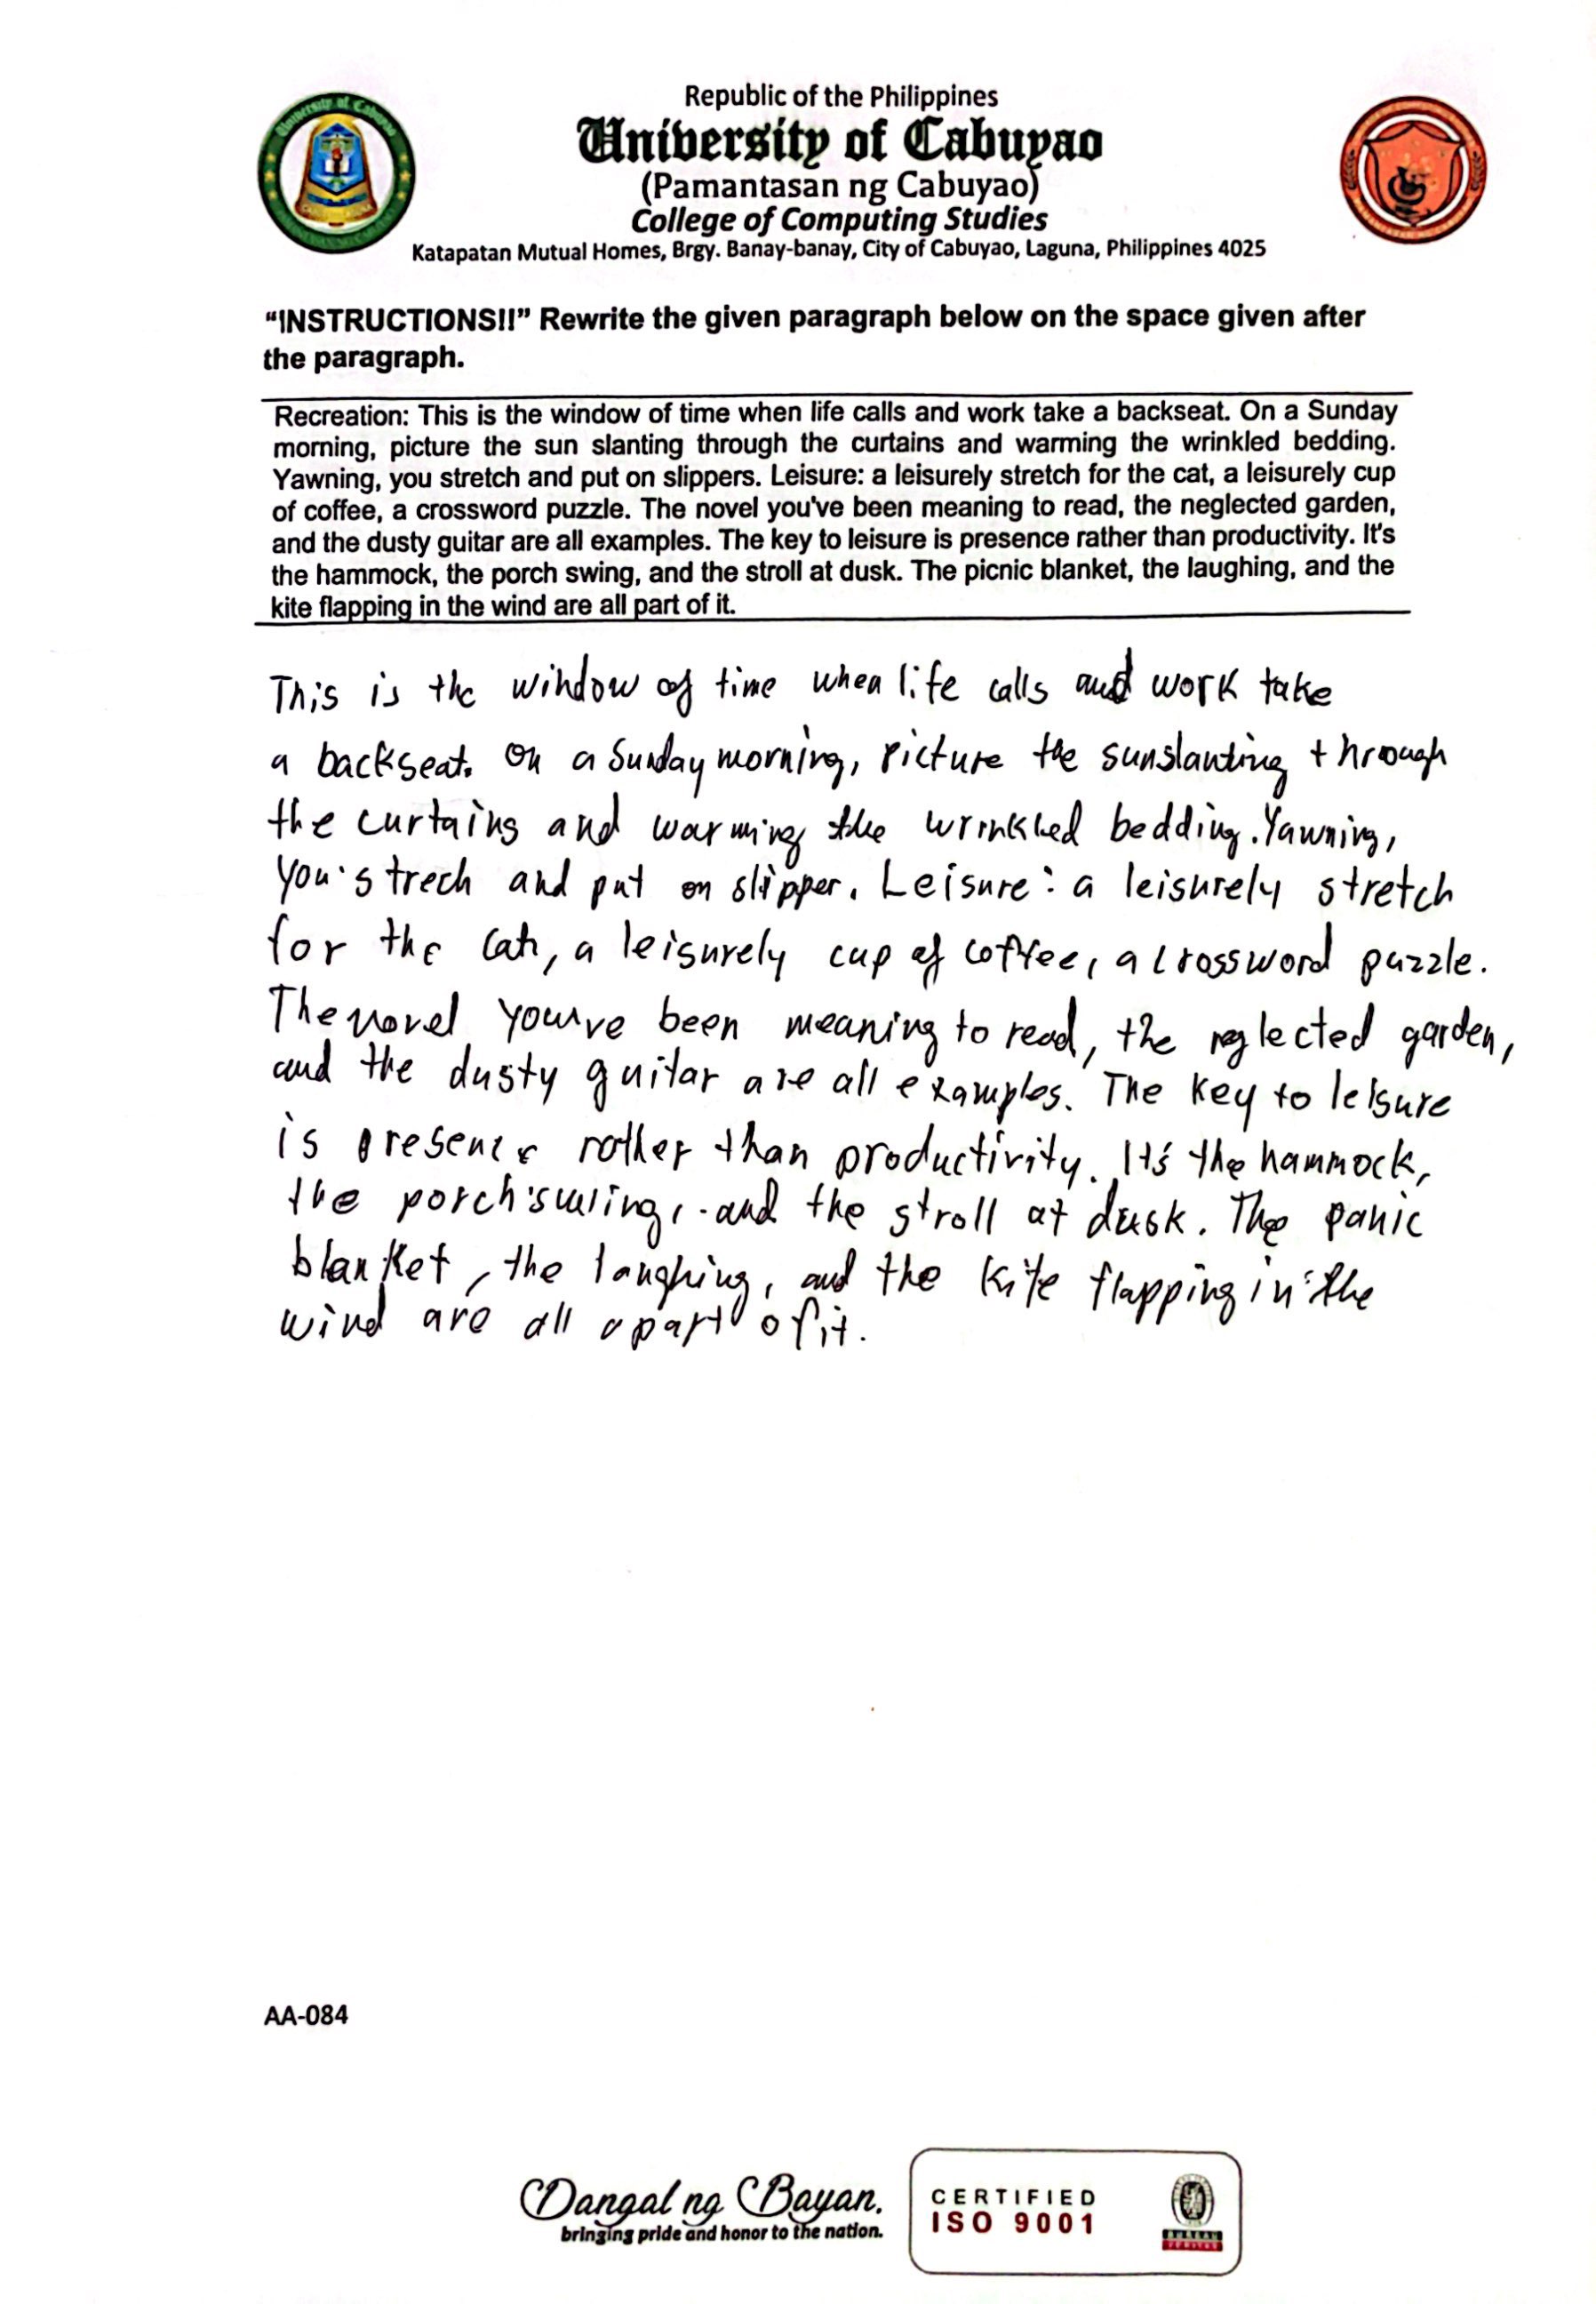 Republic of the Philippines
University of Cabuyao
(Pamantasan ng Cabuyao)
College of Computing Studies
Katapatan Mutual Homes, Brgy. Banay-banay, City of Cabuyao, Laguna, Philippines 4025
“INSTRUCTIONS!!” Rewrite the given paragraph below on the space given after
the paragraph.
Recreation: This is the window of time when life calls and work take a backseat. On a Sunday
morning, picture the sun slanting through the curtains and warming the wrinkled bedding.
Yawning, you stretch and put on slippers. Leisure: a leisurely stretch for the cat, a leisurely cup
of coffee, a crossword puzzle. The novel you've been meaning to read, the neglected garden,
and the dusty guitar are all examples. The key to leisure is presence rather than productivity. It's
the hammock, the porch swing, and the stroll at dusk. The picnic blanket, the laughing, and the
kite flapping in the wind are all part of it.
This is the window of time when life calls and work take
a backseat. On a Sunday morning, picture the sunslanting through
the curtains and warming the wrinkled bedding. Yawning,
you strech and put on slipper. Leisure: a leisurely stretch
for the cat, a leisurely cup of coffee, a crossword puzzle.
The novel you've been meaning to read, the neglected garden,
and the dusty guitar are all examples. The key to leisure
is presence rather than productivity. It's the hammock,
the porch swing, and the stroll at dusk. The panic
blanket, the laughing, and the kite flapping in the
wind are all a part of it.
AA-084
Dangal ng Bayan.
bringing pride and honor to the nation.
CERTIFIED
ISO 9001
BUREAU
VERITAS